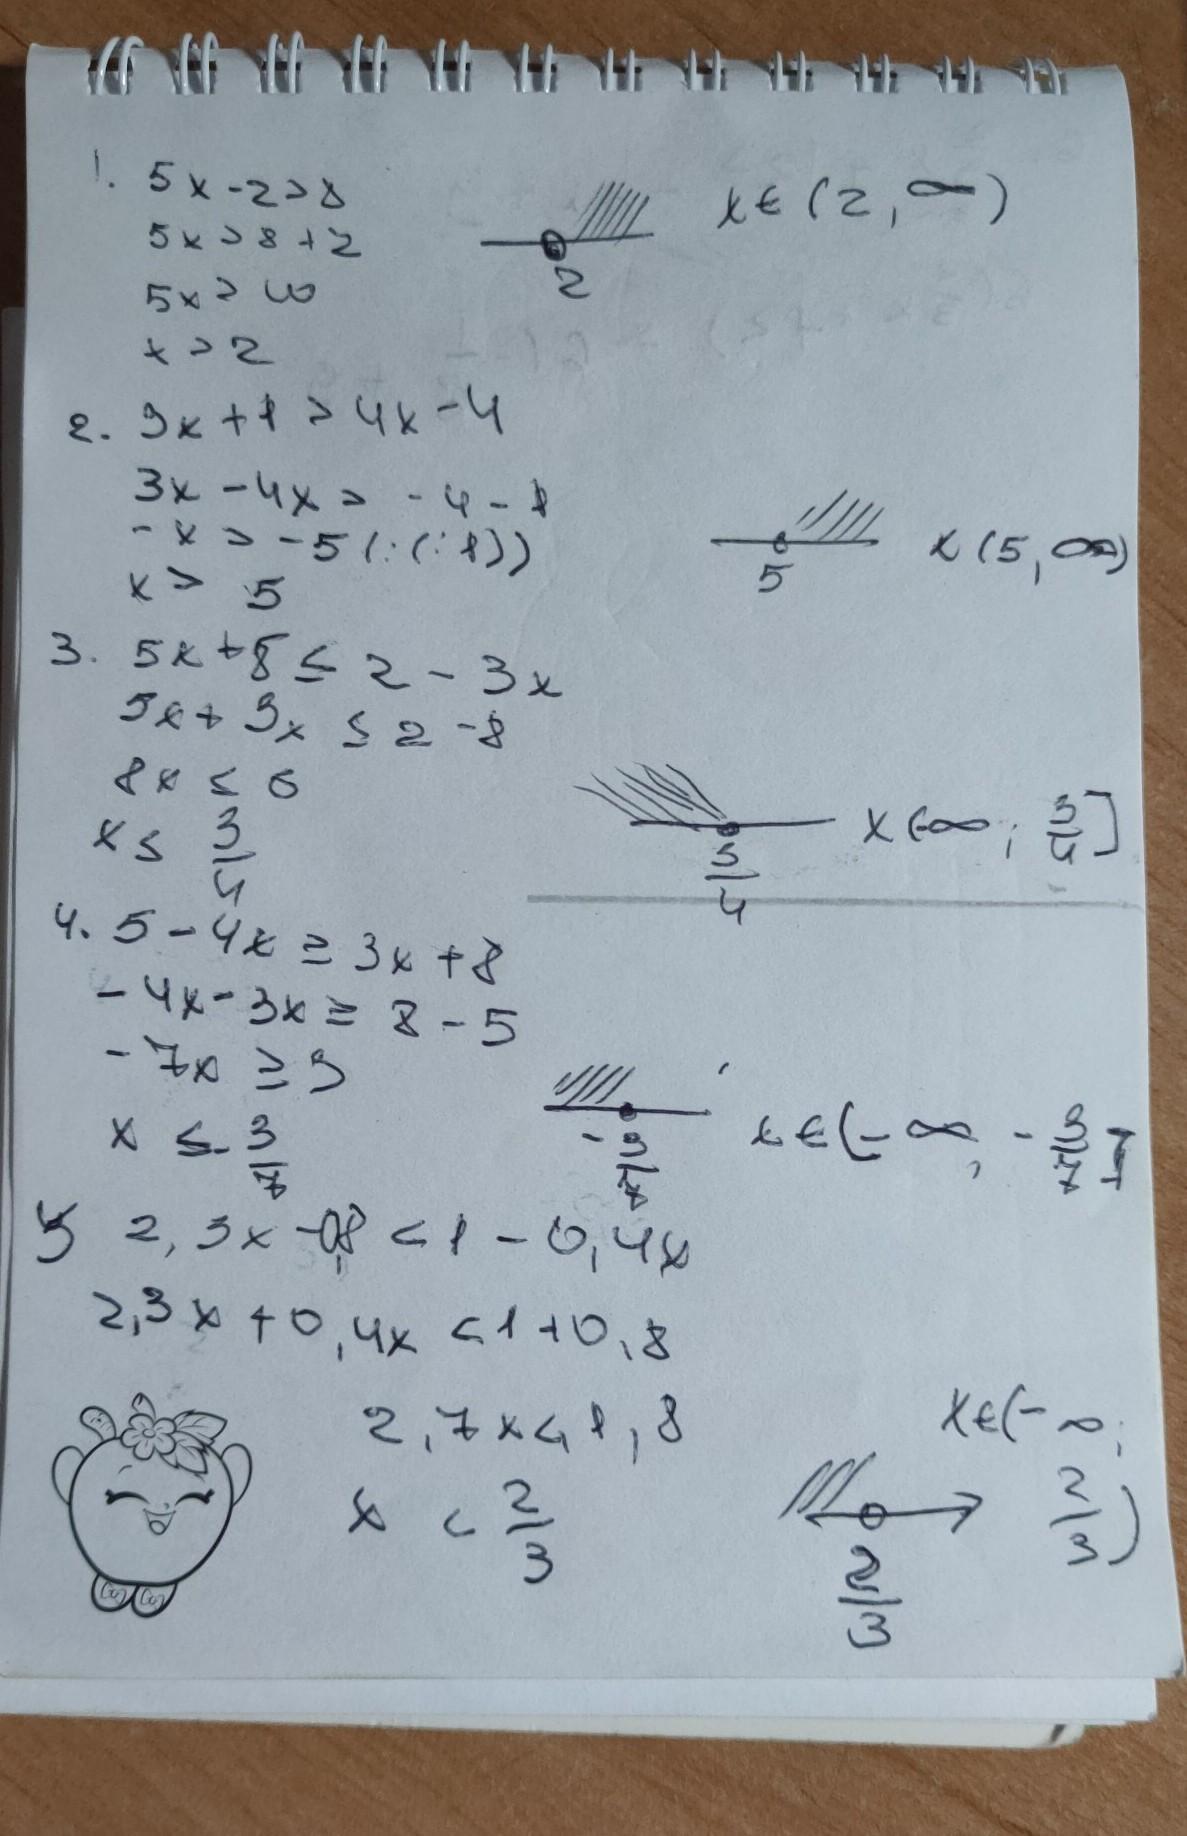 1. 5x - 2 > 8
5x > 8 + 2
5x > 10
x > 2
2
x ∈ (2, ∞)
2. 3x + 1 > 4x - 4
3x - 4x > - 4 - 1
- x > - 5 (: (-1))
x > 5
5
x (5, ∞)
3. 5x + 8 ≤ 2 - 3x
5x + 3x ≤ 2 - 8
8x ≤ 6
x ≤ 3/4
3/4
x (-∞; 3/4]
4. 5 - 4x ≥ 3x + 8
- 4x - 3x ≥ 8 - 5
- 7x ≥ 3
x ≤ - 3/7
- 3/7
x ∈ (- ∞, - 3/7]
5 2,3x - 0,8 < 1 - 0,4x
2,3x + 0,4x < 1 + 0,8
2,7x < 1,8
x < 2/3
2/3
x ∈ (- ∞;
2/3)